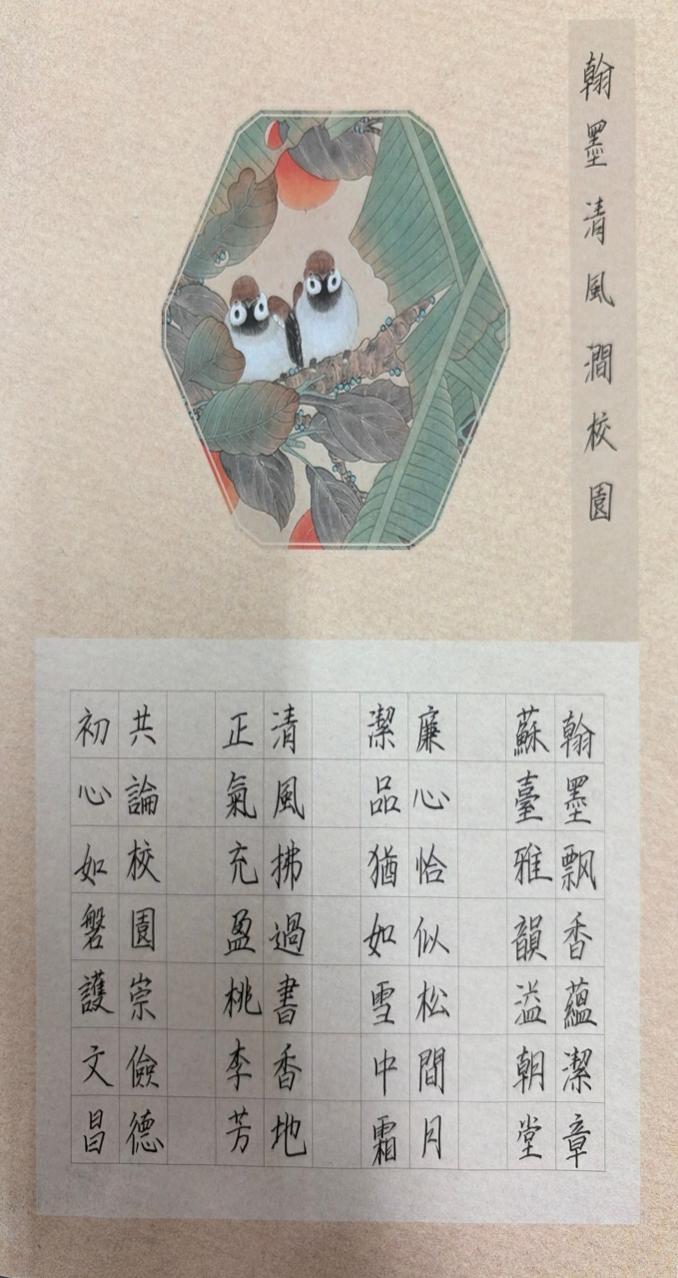 翰墨清風澗校園
翰墨飄香蘊潔章
蘇臺雅韻溢朝堂
廉心恰似松間月
潔品猶如雪中霜
清風拂過書香地
正氣充盈桃李芳
共論校園崇儉德
初心如磐護文昌